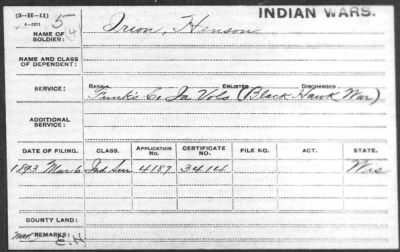 (3-II-11)
INDIAN WARS.
54
NAME OF SOLDIER: Irion, Henson
NAME AND CLASS OF DEPENDENT:
RANK. ENLISTED DISCHARGED
SERVICE: Funk's Co Ia Vols (Black Hawk War)
ADDITIONAL SERVICE:
DATE OF FILING. CLASS. APPLICATION No. CERTIFICATE No. FILE NO. ACT. STATE.
1893 Mar 6 Ind Sur 4187 3414 Wis
COUNTY LAND:
REMARKS: E.H